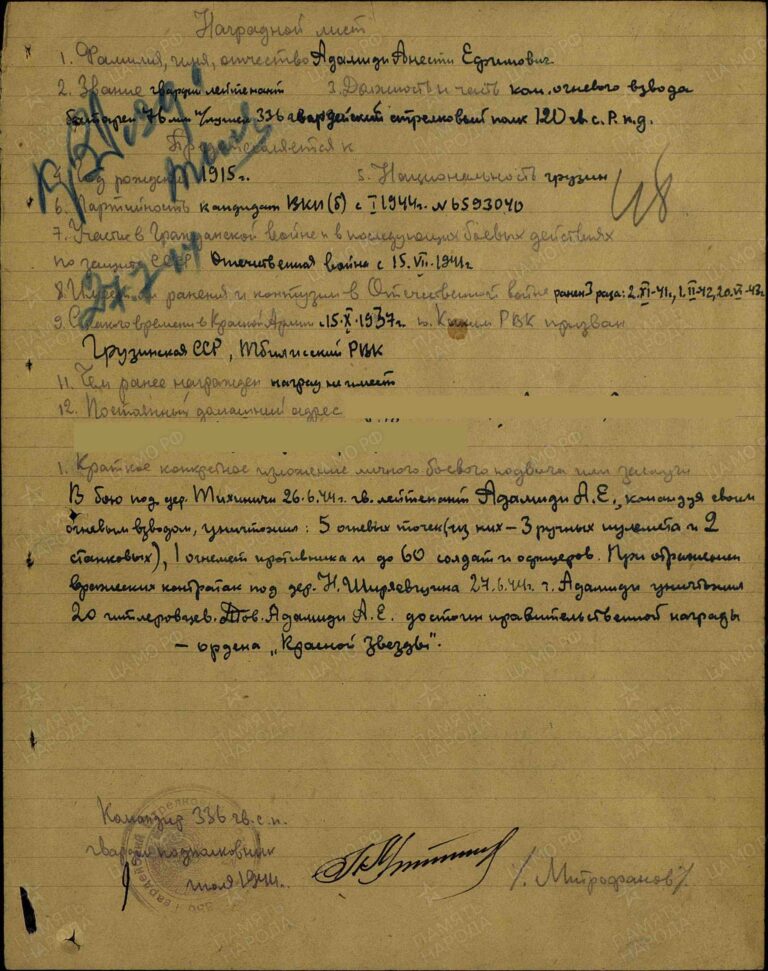 Наградной лист
1. Фамилия, имя, отчество Адамиди Анести Ефимович
2. Звание гвардии лейтенант 3. Должность и часть ком. огневого взвода
батареи 76 мм пушек 336 гвардейский стрелковый полк 120 гв. с. Р. к. д.
Представляется к
4. Год рождения 1915 г. 5. Национальность грузин
48
6. Партийность кандидат ВКП(б) с I 1944 г. № 6593040
7. Участие в Гражданской войне и в последующих боевых действиях
по защите СССР Отечественная война с 15.VII.1941 г.
27.7.44
8. Имеет ли ранения и контузии в Отечественной войне ранен 3 раза: 2.XI-41 г., 1.II-42, 20.VI-43 г.
9. С какого времени в Красной Армии с 15.X.1937 г. 10. Каким РВК призван
Грузинская ССР, Тбилисский РВК
11. Чем ранее награжден наград не имеет
12. Постоянный домашний адрес
1. Краткое конкретное изложение личного боевого подвига или заслуги
В бою под дер. Тихиничи 26.6.44 г. гв. лейтенант Адамиди А.Е., командуя своим
огневым взводом, уничтожил: 5 огневых точек (из них – 3 ручных пулемета и 2
станковых), 1 огнемет противника и до 60 солдат и офицеров. При отражении
вражеских контратак под дер. Н. Ширяевщина 27.6.44 г. т. Адамиди уничтожил
20 гитлеровцев. Тов. Адамиди А.Е. достоин правительственной награды
– ордена „Красной Звезды".
Командир 336 гв. с. п.
гвардии подполковник
/Митрофанов/
июля 1944 г.